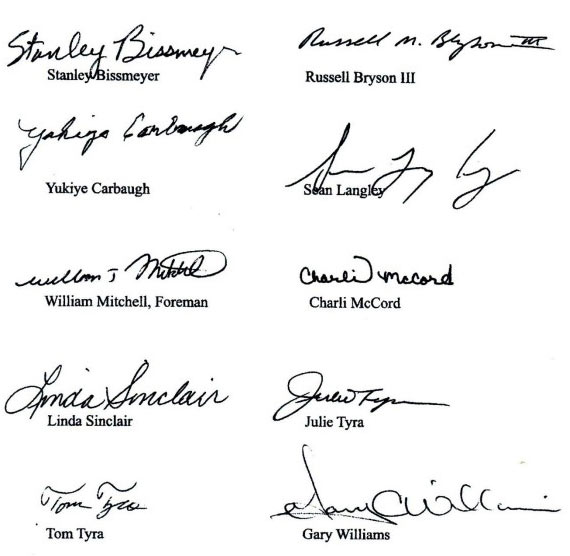 Stanley Bissmeyer
Russell M. Bryson III
Stanley Bissmeyer
Russell Bryson III
Yukiye Carbaugh
Yukiye Carbaugh
Sean Langley
William J Mitchell
Charli McCord
William Mitchell, Foreman
Charli McCord
Linda Sinclair
Julie Tyra
Linda Sinclair
Julie Tyra
Tom Tyra
Gary Williams
Tom Tyra
Gary Williams